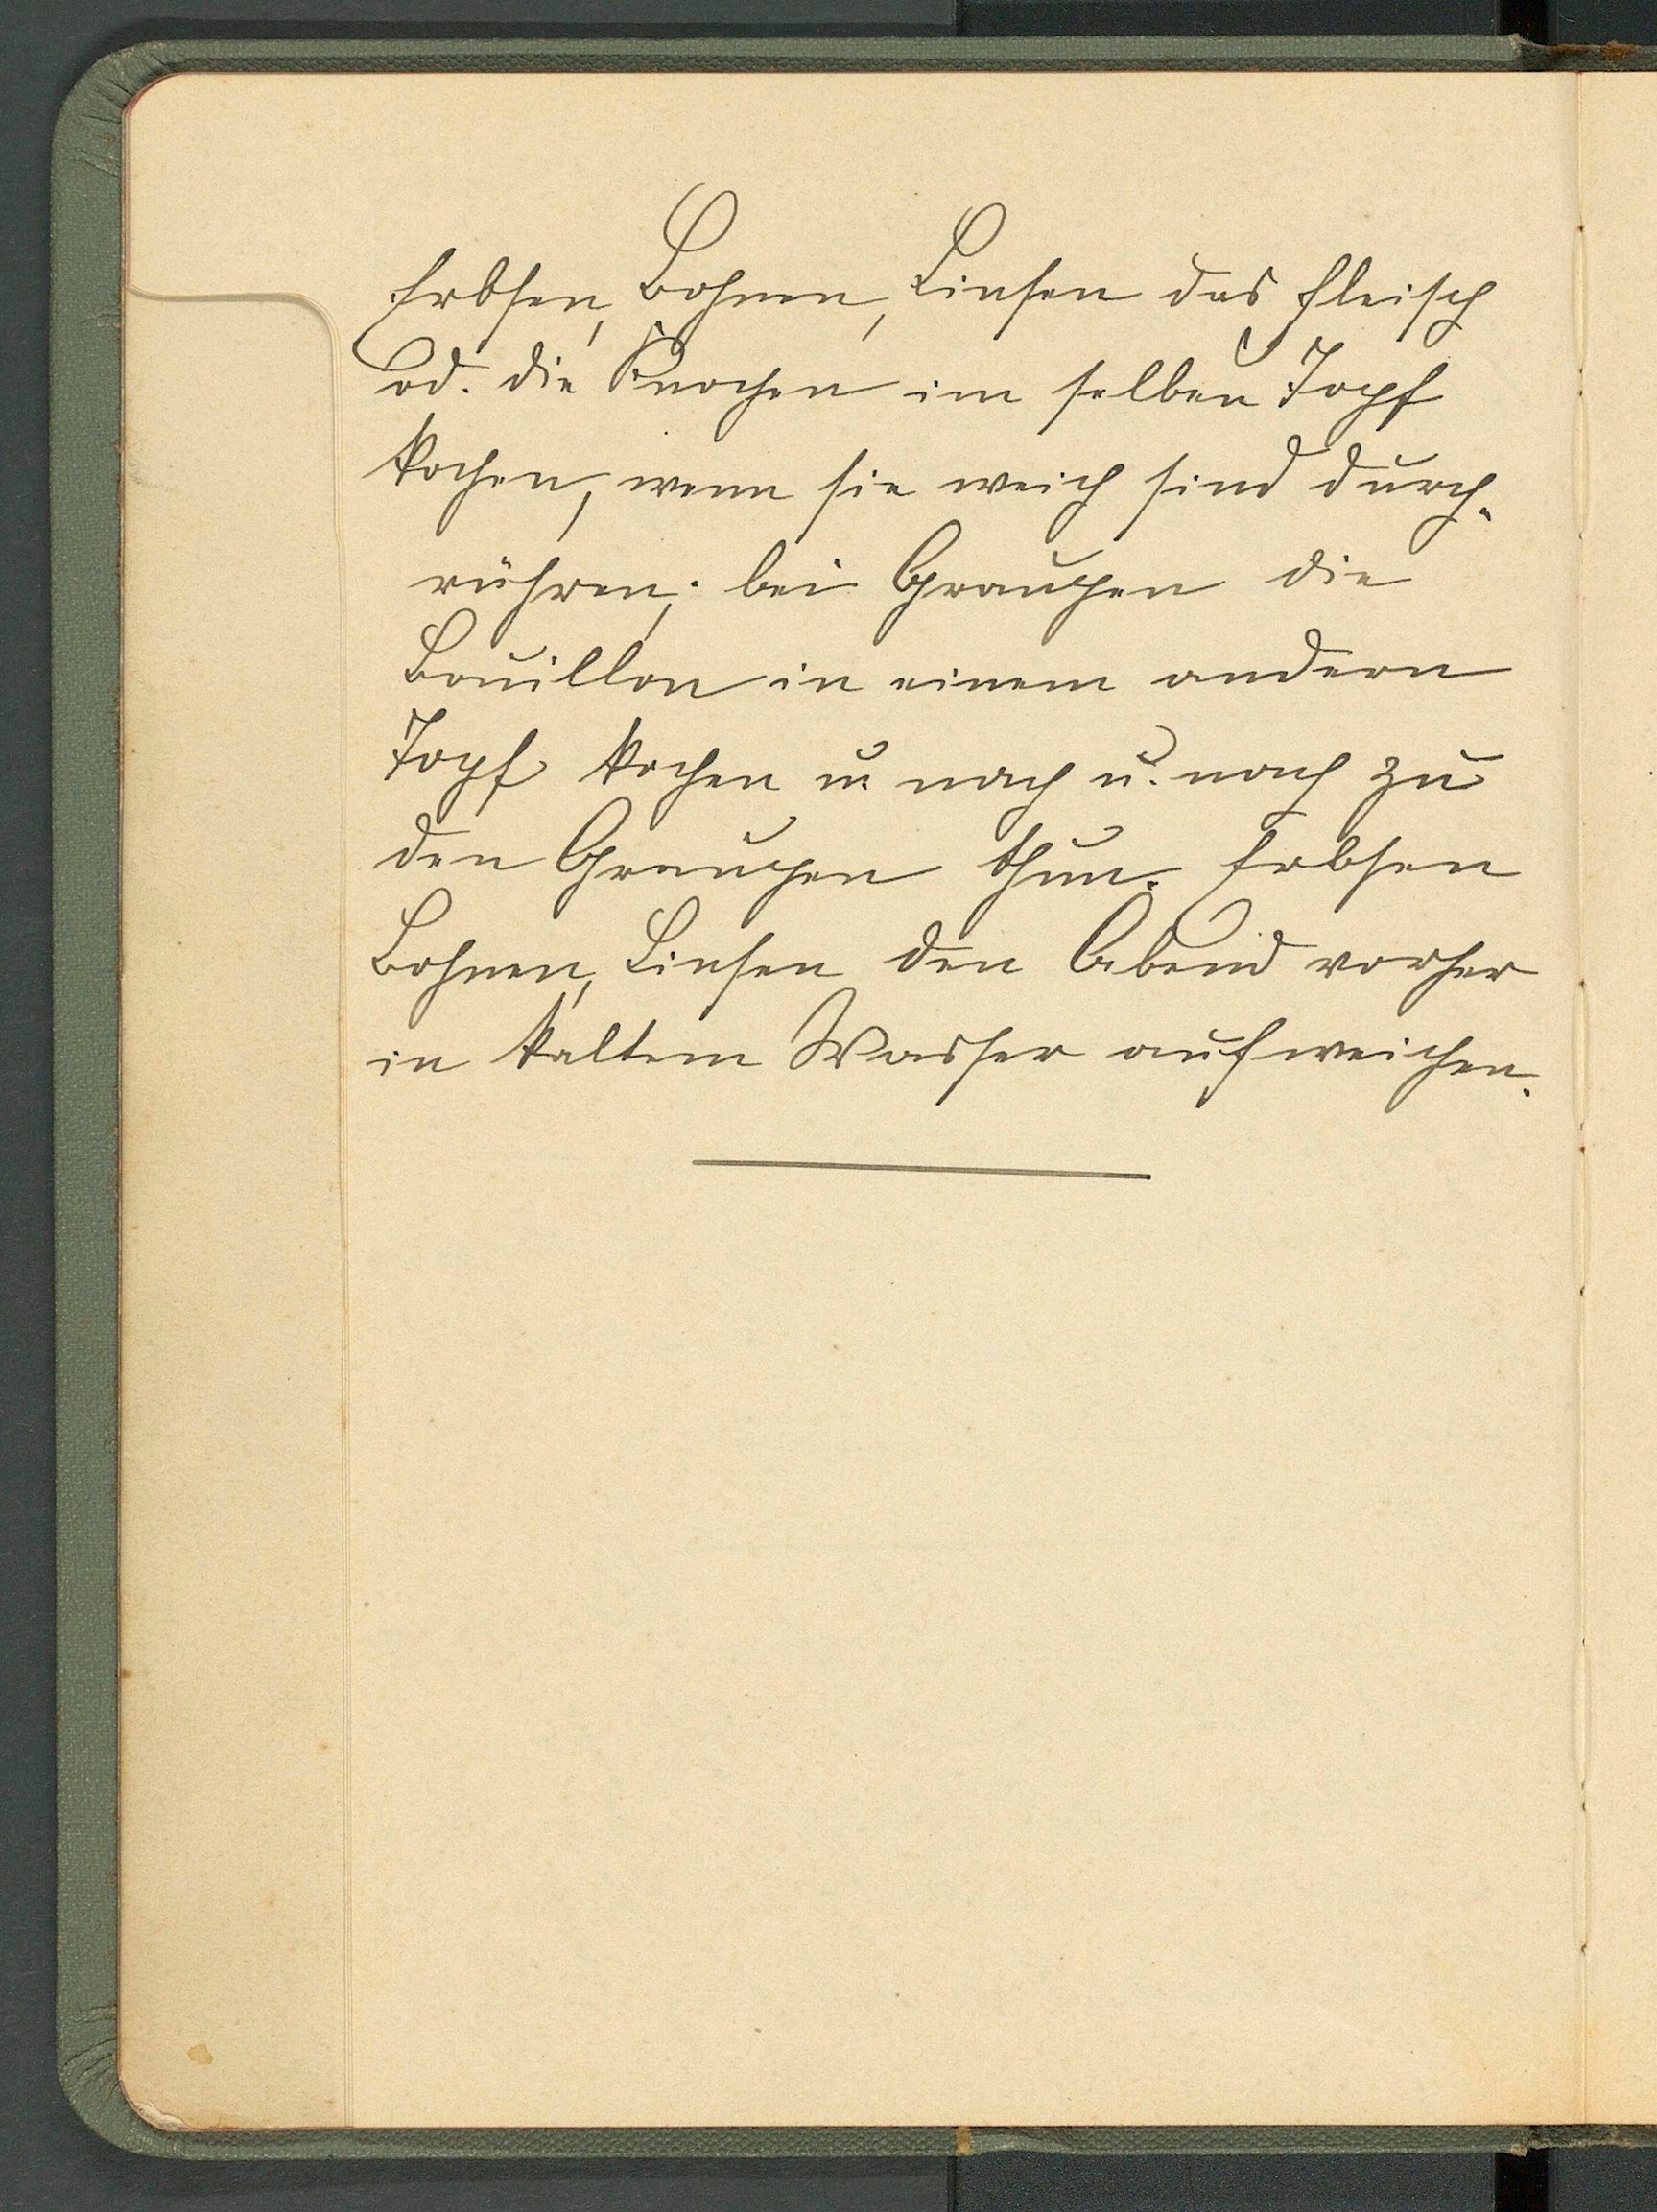 Erbsen, Bohnen, Linsen das Fleisch
od. die Knochen im selben Topf
kochen, wenn sie weich sind durch-
rühren; bei Graupen die
Bouillon in einem andern
Topf kochen u. nach u. nach zu
den Graupen thun. Erbsen
Bohnen, Linsen den Abend vorher
in kaltem Wasser aufweichen.